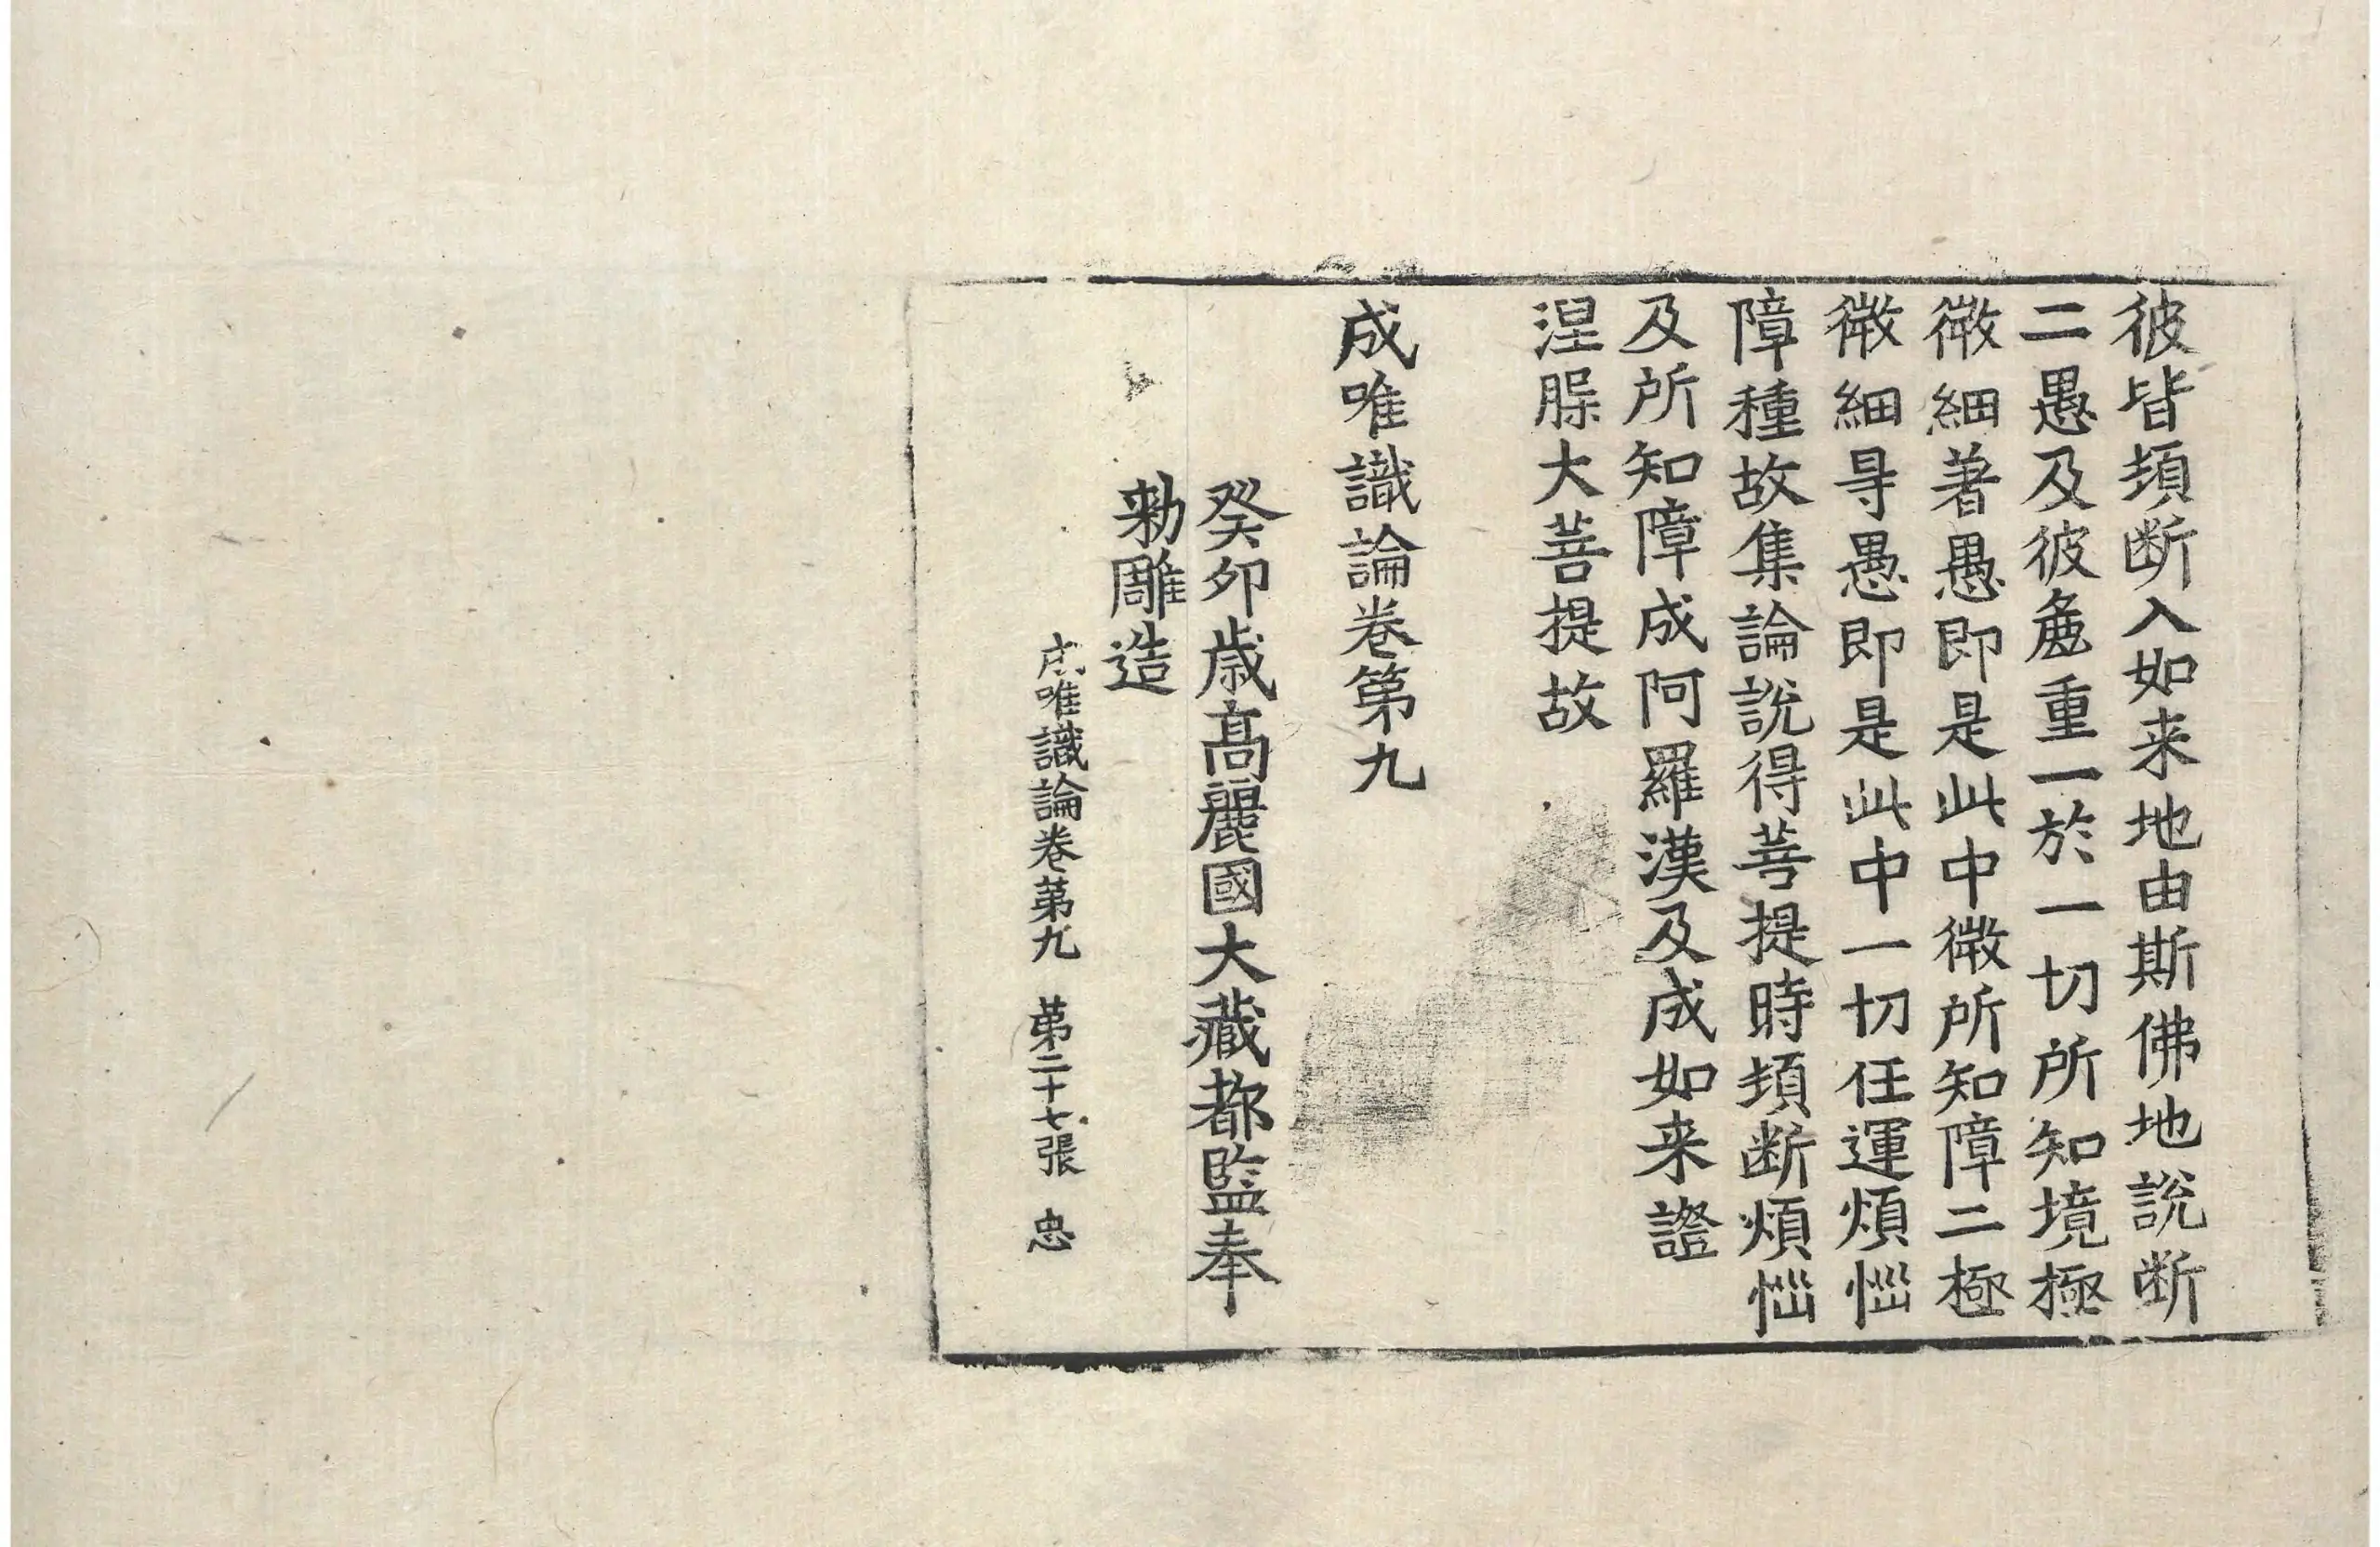 彼皆頓断入如来地由斯佛地說断
二愚及彼麁重一於一切所知境極
微細著愚即是此中微所知障二極
微細㝵愚即是此中一切任運煩惱
障種故集論說得菩提時頓断煩惱
及所知障成阿羅漢及成如来證
涅槃大菩提故
成唯識論卷第九
癸卯歳髙麗國大藏都監奉
勅雕造
成唯識論卷第九 第二十七張 忠